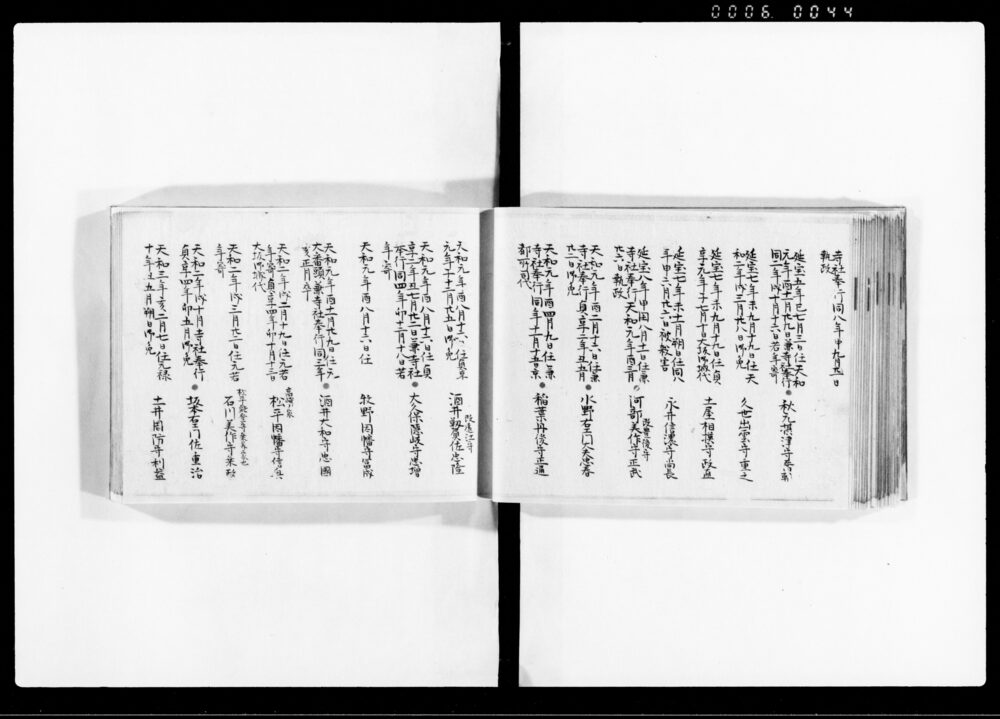 0006 0044
寺社奉行同八年申九月廿一日
執政
延宝五年巳七月三日任天和
元年酉十一月廿九日兼寺社奉行
同二年戌十月十六日若年寄
秋元摂津守喬朝
延宝七年未九月十九日任天
和二年戌三月廿八日御免
久世出雲守重之
延宝七年未九月十九日任貞
享元年子七月十日大坂御城代
土屋相摸守政直
延宝七年未十一月朔日任同八
年申六月廿六日被殺害
永井信濃守尚長
延宝八年申閏八月十一日任兼
寺社奉行天和元年酉三月
廿六日執政
改豊後守
阿部美作守正武
天和元年酉二月十六日任兼
寺社奉行貞享二年丑五月
廿一日御免
水野右衛門大夫忠春
天和元年酉四月九日任兼
寺社奉行同年十一月十五日京
都所司代
稲葉丹後守正通
天和元年酉八月十六日任貞享
元年十二月廿五日御免
改遠江守
酒井靱負佐忠隆
天和元年酉八月十六日任貞
享二年丑七月廿二日兼寺社
奉行同四年卯十二月十八日若
年寄
大久保隠岐守忠増
天和元年酉八月十六日任
牧野因幡守富成
天和元年酉十一月廿九日任元
大番頭兼寺社奉行同三年
亥正月卒
酒井大和守忠國
天和二年戌二月十九日任元若
年寄貞享四年卯十月十三日
大坂御城代
高崎家
松平因幡守信興
天和二年戌三月廿二日任元若
年寄
石川美作守乗政
天和二年戌十月寺社奉行
貞享四年卯五月御免
坂本右衛門佐重治
天和三年亥二月七日任元禄
十年丑五月朔日御免
土井周防守利益